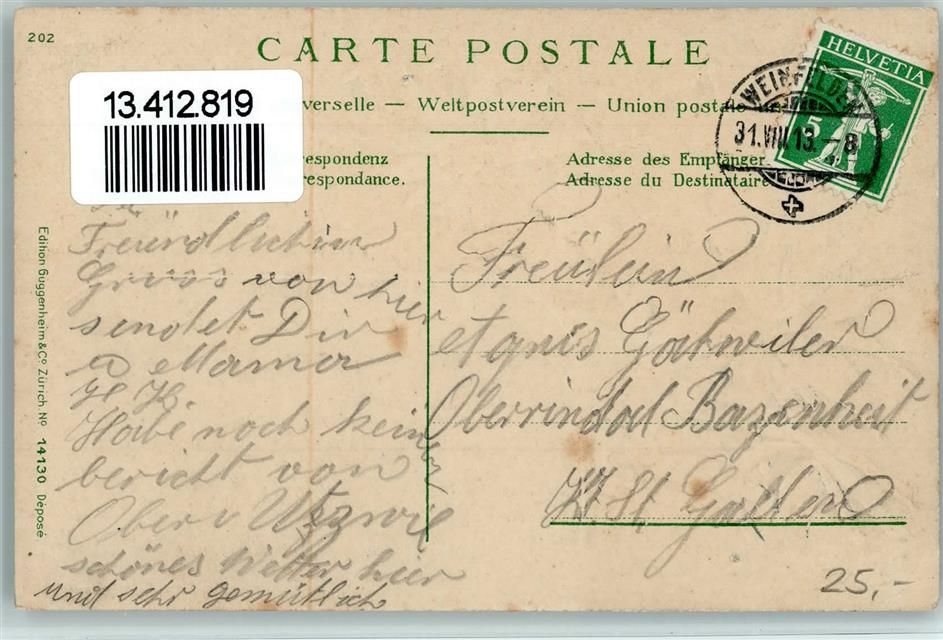 202
CARTE POSTALE
13.412.819
verselle — Weltpostverein — Union postale
respondenz
respondance.
Adresse des Empfänger
Adresse du Destinataire
HELVETIA
5
WEINFELDEN
31.VIII.13.–8
Freundlichen
Gruss von hier
sendet Dir
Mama
Habe noch keinen
bericht von
Ober Utzwil
schönes Wetter hier
und sehr gemütlich
Fräulein
Agnis Gätwiler
Oberrindal Bazenheit
Kt. St. Gallen
25.-
Edition Guggenheim & Co Zürich No 14130 Déposé